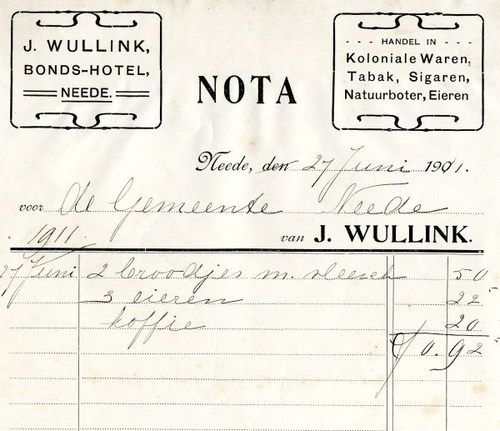 J. WULLINK,
BONDS-HOTEL,
NEEDE.
NOTA
HANDEL IN
Koloniale Waren,
Tabak, Sigaren,
Natuurboter, Eieren
Neede, den 27 Juni 1911.
voor de Gemeente Neede
1911. van J. WULLINK.
27 Juni 2 broodjes m. vleesch 50
3 eieren 22⁵
koffie 20
f 0.92⁵